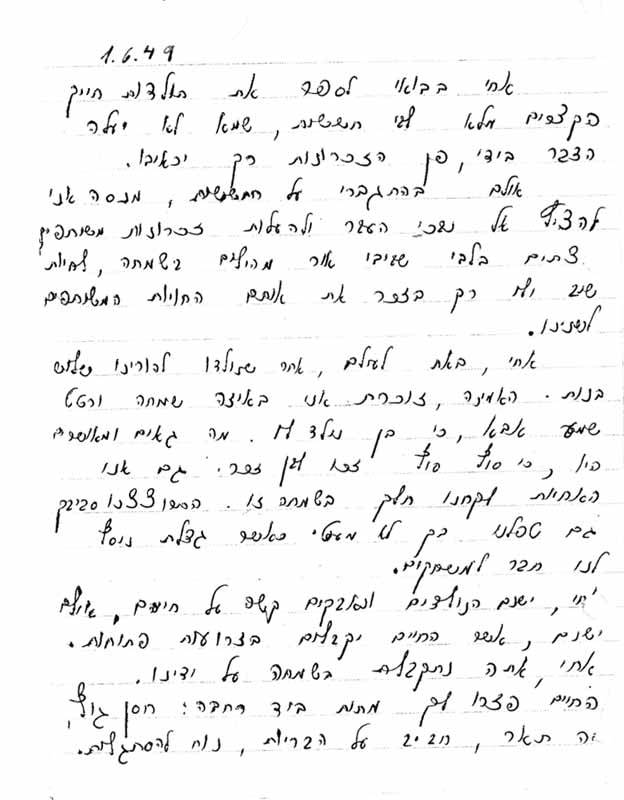 1.6.49
אחי בבואי לספר את תולדות חייך
הקצרים מלא לבי חששות, שמא לא יעלה
הדבר בידי, פן הזכרונות רק יכאיבו.
אולם בהתגברי על החששות, מנסה אני
להציץ אל נבכי העבר ולהעלות זכרונות משותפים
צתים בלבי שביבי אור מהולים בשמחה, לחיות
שוב ולו רק בזכר את אותם החויות המשותפים
לשנינו.
אחי, באת לעולם, אחר שנולדו להורינו שלוש
בנות. האמינה, זוכרת אני באיזה שמחה ורטט
שמע אבא, כי בן נולד לו. מה גאים ומאושרים
היו, כי סוף סוף זכו לבן זכר. גם אנו
האחיות לקחנו חלק בשמחה זו. הסתופפנו סביבך
גם טפלנו בך לא מעט כאשר גדלת נוסף
לנו חבר למשחקים.
אחי, ישנם הנולדים ונאבקים קשה על חייהם, אולם
ישנם, אשר החיים יקבלום בזרועות פתוחות.
אחי, אתה נתקבלת בשמחה על ידינו.
החיים פזרו לך מתנות ביד רחבה: חוסן גוף,
יפה תאר, חביב על הבריות, נוח להסתגלות.